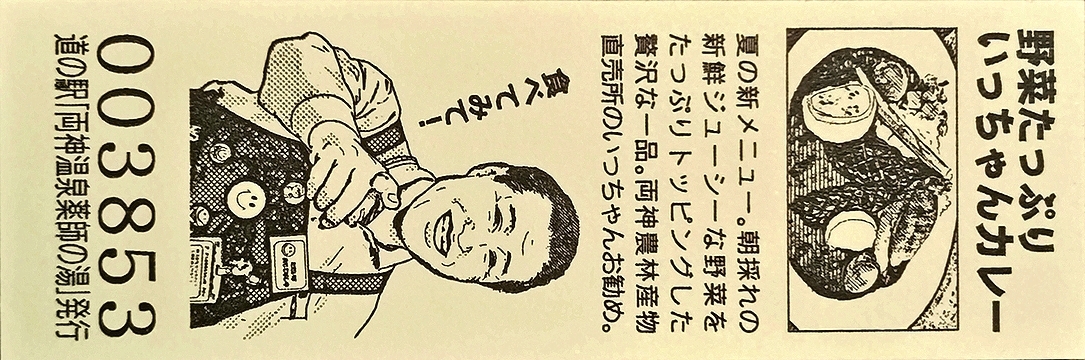 野菜たっぷり
いっちゃんカレー
夏の新メニュー。朝採れの
新鮮ジューシーな野菜を
たっぷりトッピングした
贅沢な一品。両神農林産物
直売所のいっちゃんお勧め。
食べてみて!
003853
道の駅「両神温泉薬師の湯」発行